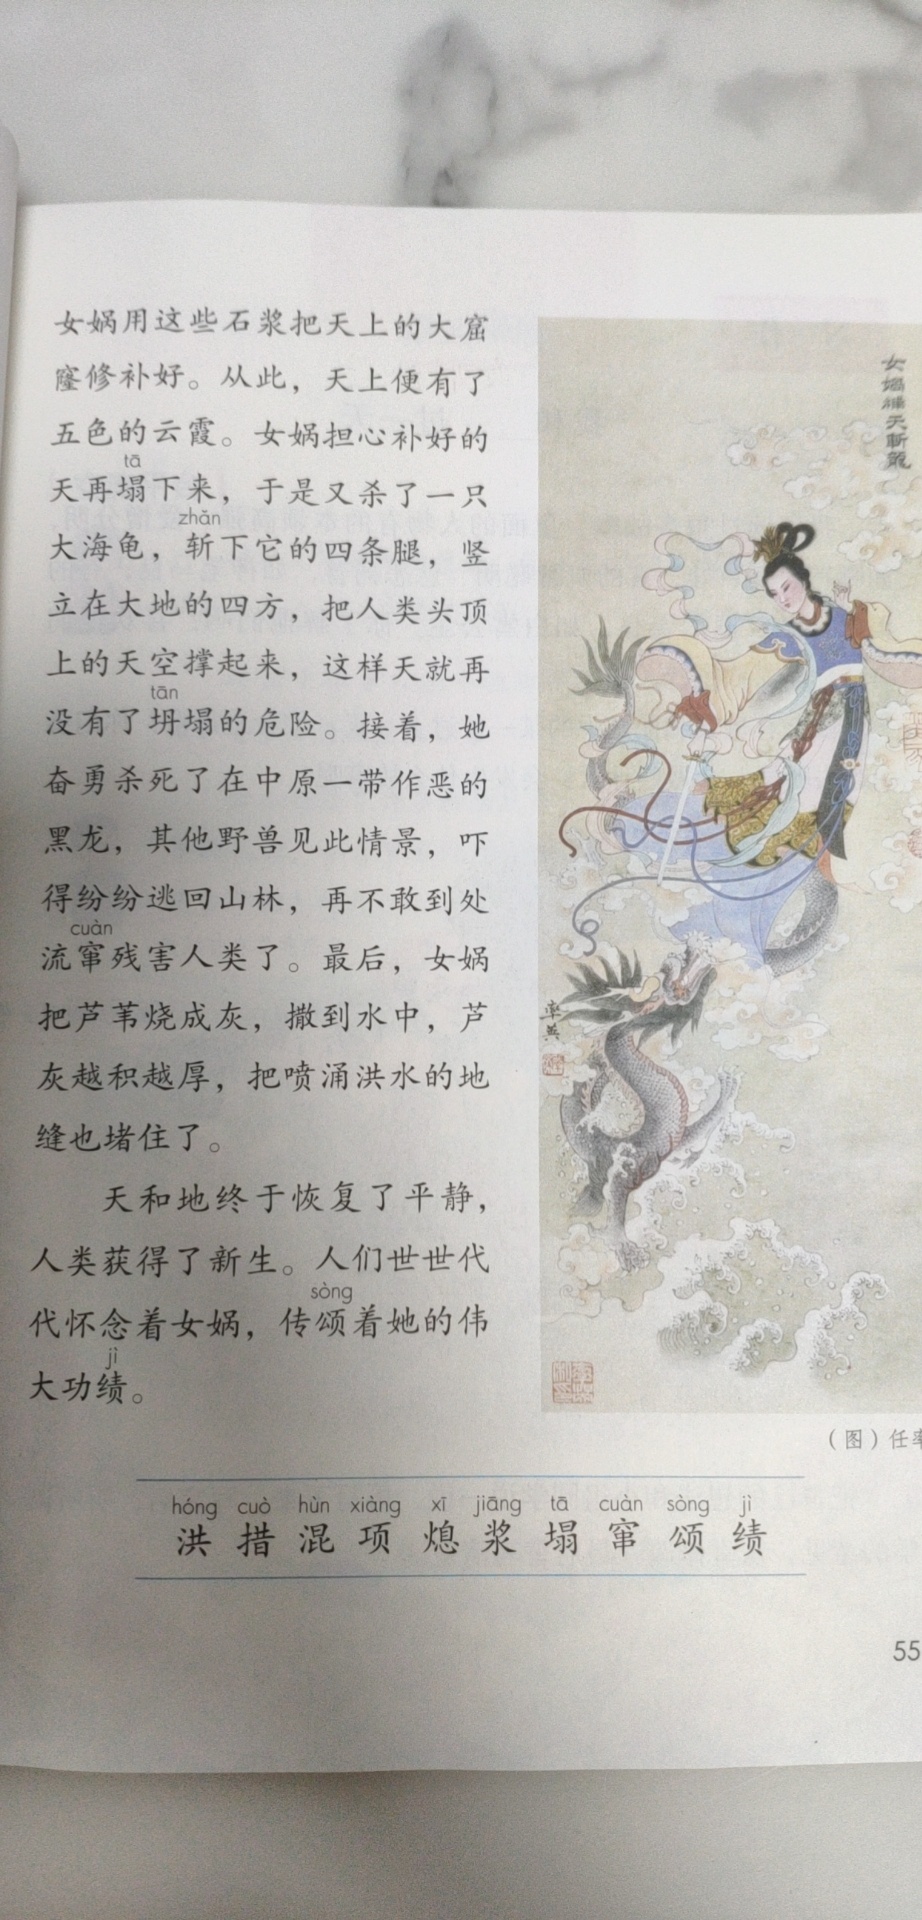 女娲用这些石浆把天上的大窟
窿修补好。从此，天上便有了
五色的云霞。女娲担心补好的
tā
天再塌下来，于是又杀了一只
zhǎn
大海龟，斩下它的四条腿，竖
立在大地的四方，把人类头顶
上的天空撑起来，这样天就再
tān
没有了坍塌的危险。接着，她
奋勇杀死了在中原一带作恶的
黑龙，其他野兽见此情景，吓
得纷纷逃回山林，再不敢到处
cuàn
流窜残害人类了。最后，女娲
把芦苇烧成灰，撒到水中，芦
灰越积越厚，把喷涌洪水的地
缝也堵住了。
天和地终于恢复了平静，
人类获得了新生。人们世世代
sòng
代怀念着女娲，传颂着她的伟
jì
大功绩。
女娲补天斬龍
率英
（图）任率
hóng cuò hùn xiàng xī jiāng tā cuàn sòng jì
洪 措 混 项 熄 浆 塌 窜 颂 绩
55